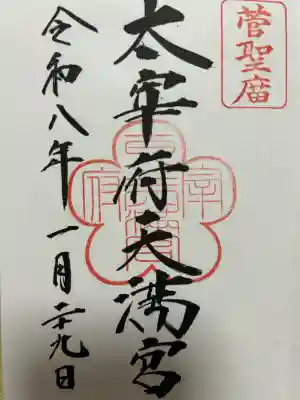 菅聖廟
太宰府天満宮
令和八年一月二十九日